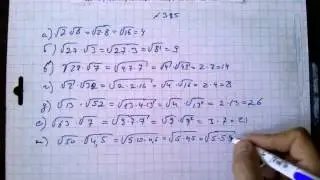 №385
а) √2·√8 = √2·8 = √16 = 4
б) √27·√3 = √27·3 = √81 = 9
в) √28·√7 = √4·7·7 = √4·√7² = 2·7 = 14
г) √2·√32 = √2·2·16 = √4·√16 = 2·4 = 8
д) √13·√52 = √13·4·13 = √4·√13² = 2·13 = 26
е) √63·√7 = √9·7·7 = √9·√7² = 3·7 = 21
ж) √50·√4,5 = √5·10·4,5 = √5·45 = √5·5·9